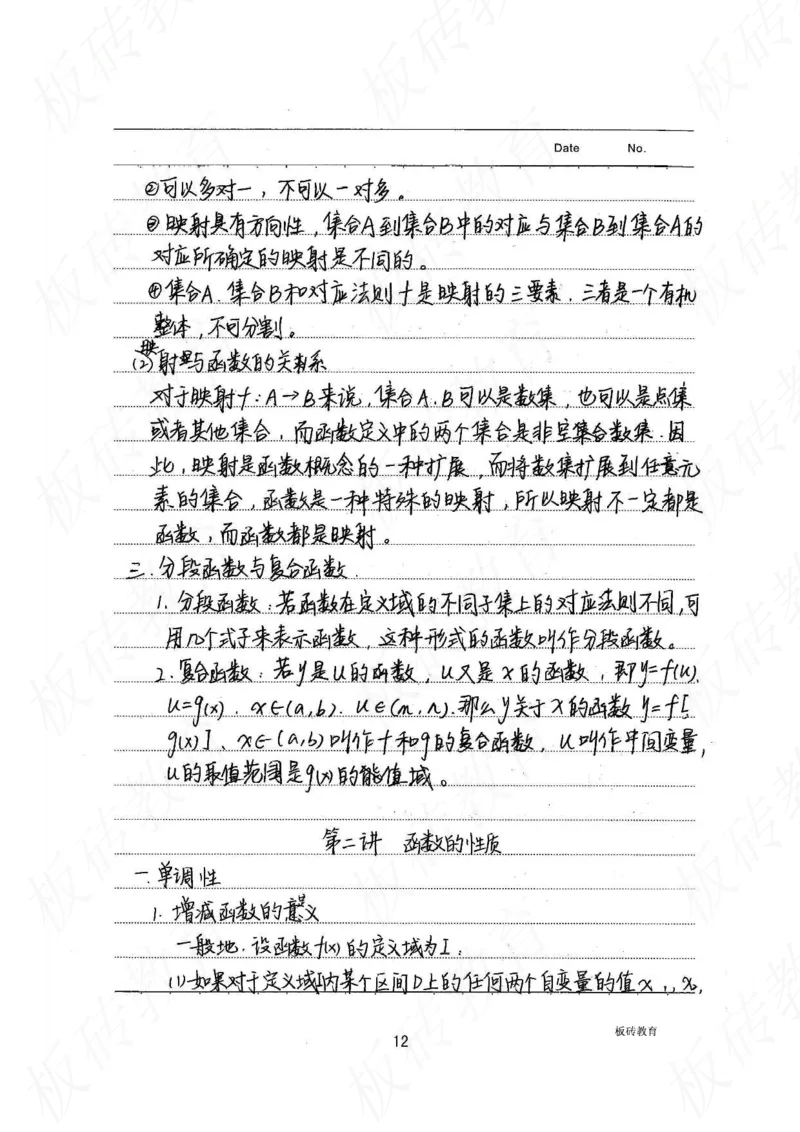 Date No.
②可以多对一，不可以一对多。
③映射具有方向性，集合A到集合B中的对应与集合B到集合A的
对应所确定的映射是不同的。
④集合A、集合B和对应法则f是映射的三要素．三者是一个有机
整体，不可分割。
(2)映射与函数的关系
对于映射f：A→B来说，集合A．B可以是数集，也可以是点集
或者其他集合，而函数定义中的两个集合是非空集合数集．因
此，映射是函数概念的一种扩展，而将数集扩展到任意元
素的集合，函数是一种特殊的映射，所以映射不一定都是
函数，而函数都是映射。
三．分段函数与复合函数．
1．分段函数：若函数在定义域的不同子集上的对应法则不同，可
用几个式子来表示函数，这种形式的函数叫作分段函数。
2．复合函数：若y是u的函数，u又是x的函数，即y=f(u)．
u=g(x)．x∈(a,b)．u∈(m,n)．那么y关于x的函数y=f[
g(x)]、x∈(a,b)叫作f和g的复合函数，u叫作中间变量，
u的取值范围是g(x)的值域。
第二讲 函数的性质
一．单调性
1．增减函数的意义
一般地．设函数f(x)的定义域为I：
(1)如果对于定义域I内某个区间D上的任何两个自变量的值x₁，x₂，
板砖教育
12